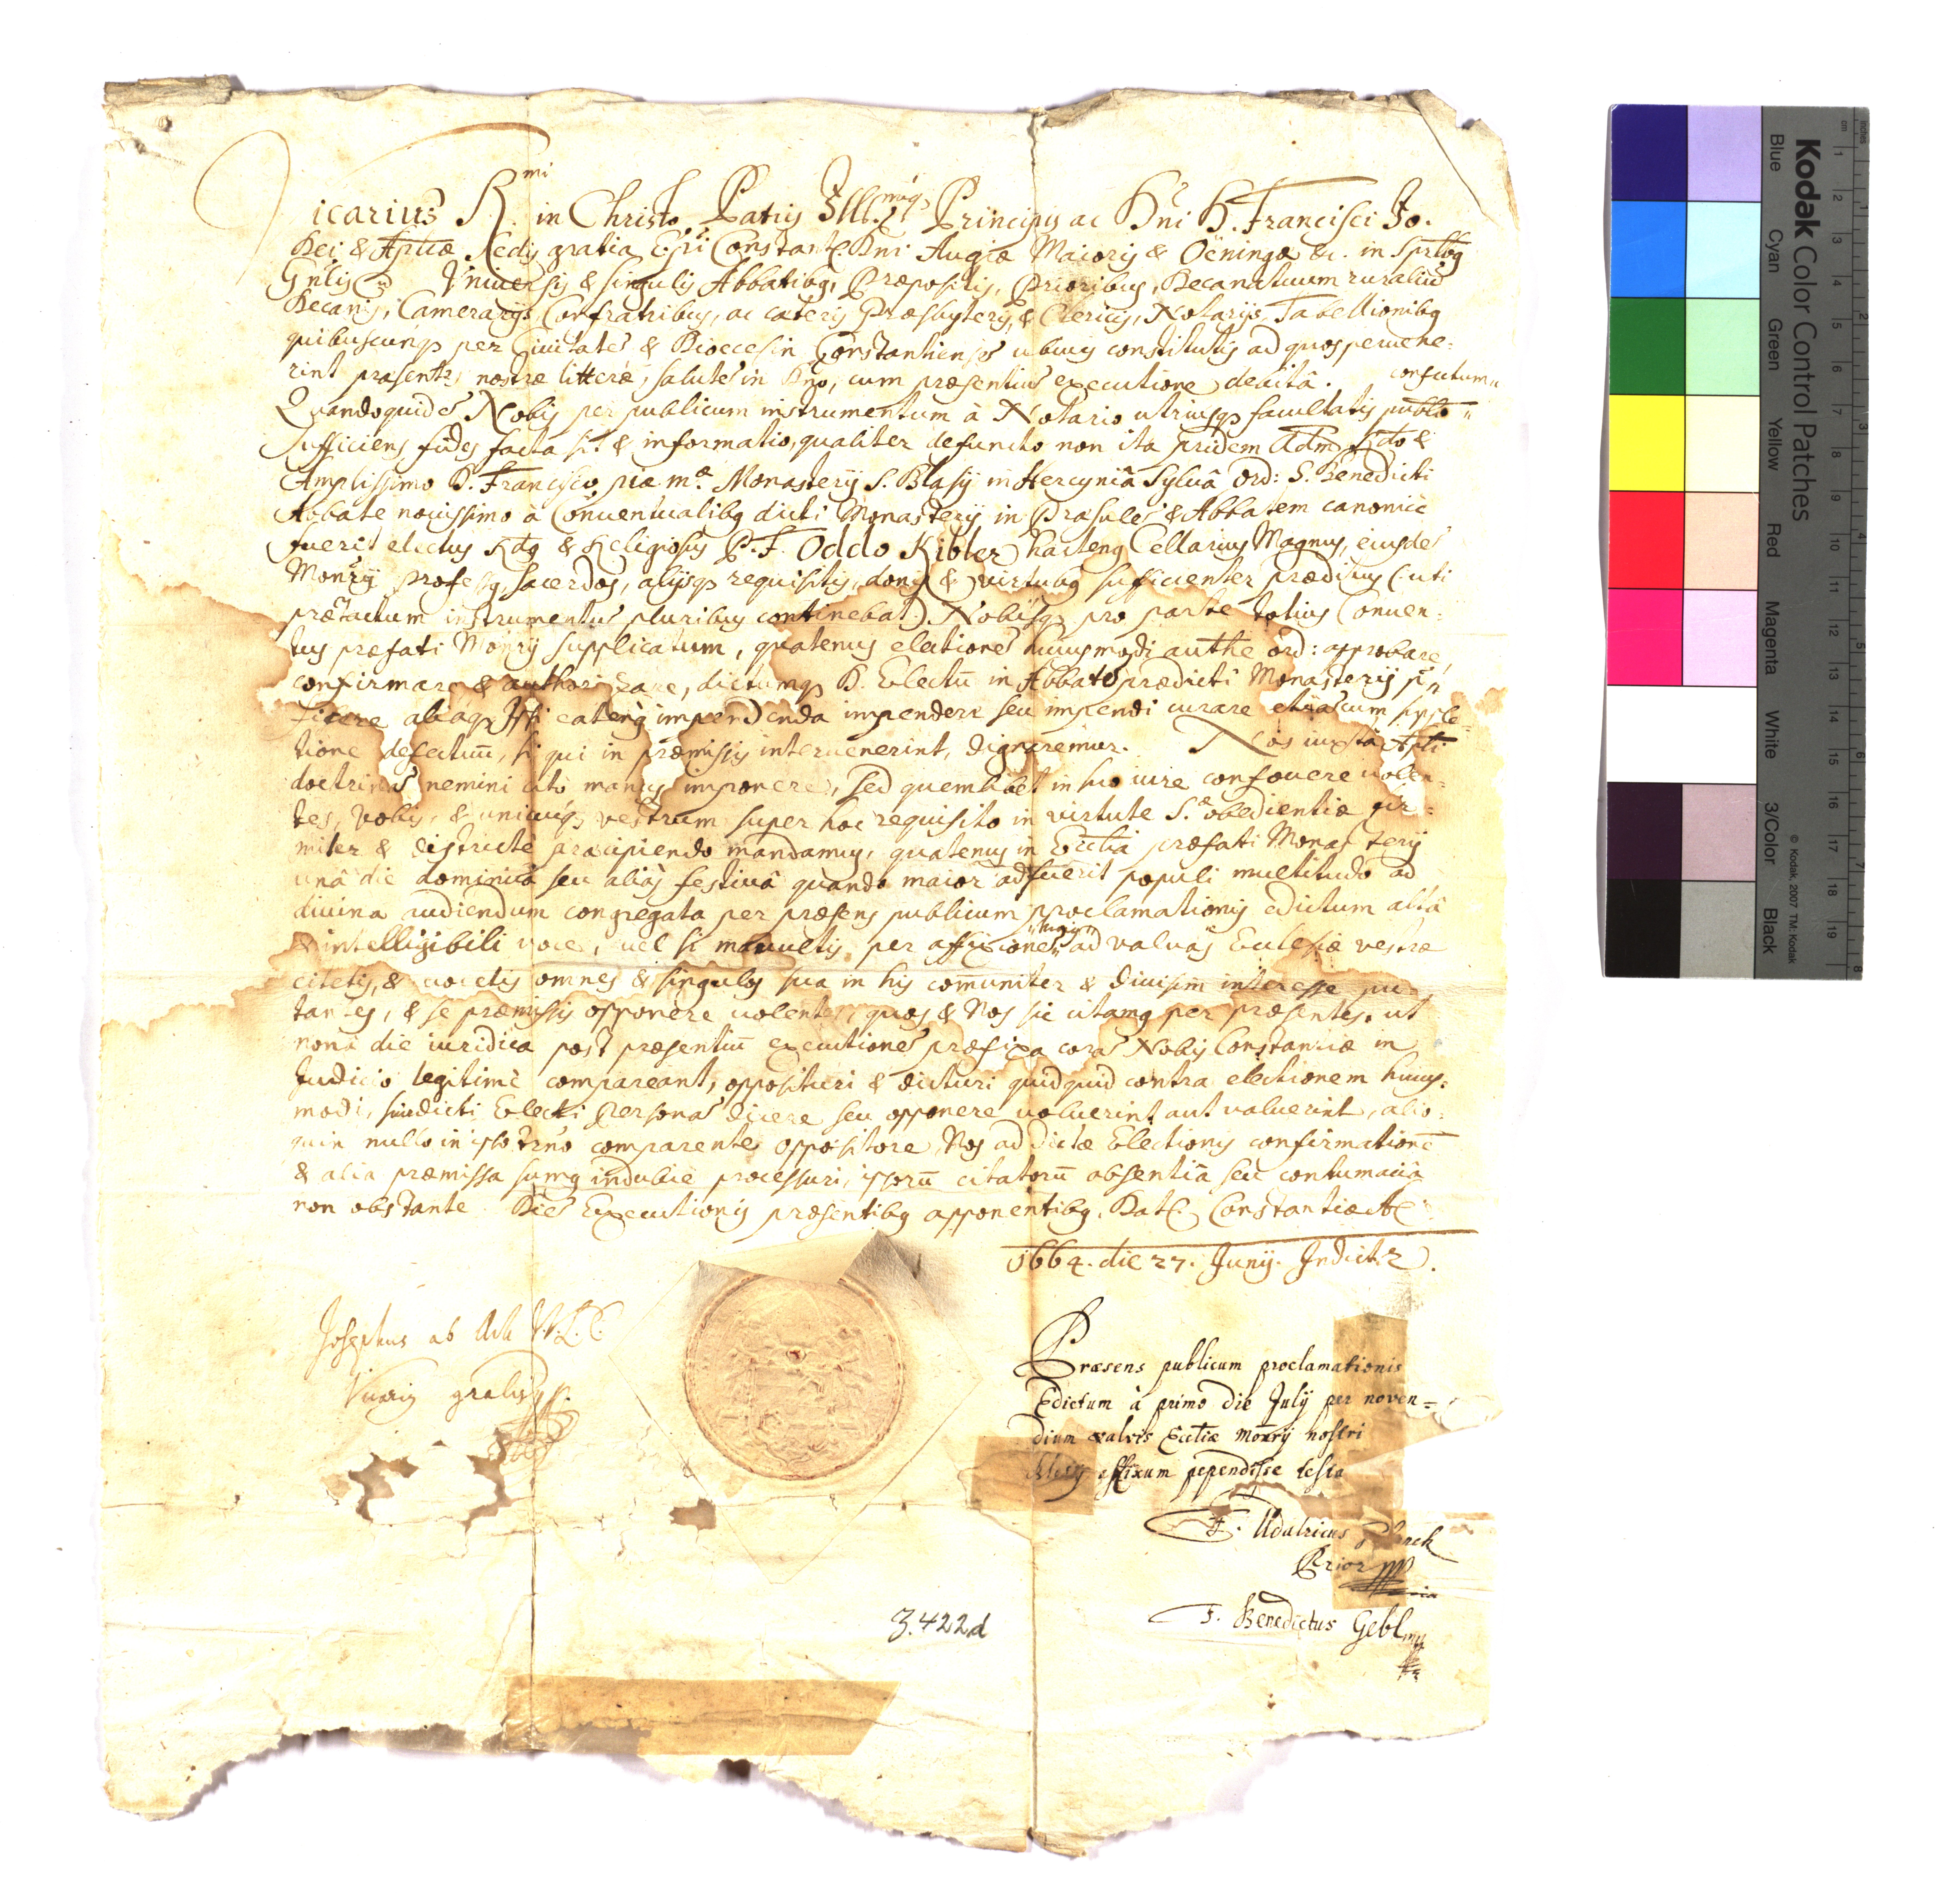 Vicarius R.mi in Christo Patris Ill.miq3 Principis ac Dni D. Francisci Jo.
Dei & Aplicæ Sedis gratia Epi Constant. Dni Augiæ Maioris & Oeningæ &c. in Sprlibg
Gnlis Vniuersis & singulis Abbatibg, Præpositis, Prioribus, Decanatuum ruraliũ
Decanis, Camerarijs, Confratribus, ac cæteris Præsbyteris, & Clericis, Notarijs, Tabellionibg
quibuscunq3 per Ciuitatẽ & Dioecesin Constantiensẽ ubiuis constitutis ad quos peruene=
rint præsentes nostræ litteræ, salutẽ in Dno, cum præsentiũ executione debitâ.
Quandoquidẽ Nobis per publicum instrumentum à Notario utriusq3 facultatis publico confectum
sufficiens fides facta sit & informatio, qualiter defuncto non ita pridem Adm. Rdo &
Amplissimo D. Francisco piæ mæ. Monasterij S. Blasij in Hercyniâ Syluâ Ord: S. Benedicti
Abbate nouissimo à Conuentualibg dicti Monasterij in Præsulẽ & Abbatem canonicè
fuerit electus Rdg & Religiosus P. F. Oddo Kibler hacteng Cellarius Magnus, eiusdẽ
Monrij professg sacerdos, alijsq3 requisitis, donis & virtutibg sufficienter præditus (uti
prætactum instrumentũ pluribus continebat). Nobisq3 pro parte totius Conuen=
tus præfati Monrij supplicatum, quatenus electionẽ huiusmodi authe ord: approbare,
confirmare & authorizare, dictumq3 D. Electũ in Abbatẽ prædicti Monasterij
ficere aliaq3 Ipsi eateng impendenda impendere seu impendi curare etiã cum supple=
tione defectuũ, si qui in præmissis interuenerint, dignaremur. Nos iuxta Apli
doctrinã nemini citò manus imponere, sed quemlibet in suo iure confouere uolen=
tes, Vobis, & uniuiq3 vestrum super hoc requisito in virtute S.æ obedientiæ fir=
miter & districtè præcipiendo mandamus, quatenus in Ecclia præfati Monasterij
unâ die dominicâ seu aliàs festiuâ quando maior adfuerit populi multitudo ad
diuina audiendum congregata per præsens publicum proclamationis edictum altâ
& intelligibili uoce, uel si mauultis per affixionẽ huius ad valuas Ecclesiæ vestræ
citetis, & uocetis omnes & singulos sua in his comuniter & diuisim interesse pu=
tantes, & se præmissis opponere uolentes, quos & Nos sic citamg per præsentes, ut
nonâ die iuridicâ post præsentiũ executionẽ præfixa corã Nobis Constantiæ in
Judicio legitimè compareant, opposituri & dicturi quidquid contra electionem huius=
modi, siue dicti Electi personã dicere seu opponere uoluerint aut ualuerint, alio=
quin nullo in ipso trno comparente oppositore, Nos ad dictæ Electionis confirmationẽ
& alia præmissa sumg indubiè processuri, ipsorũ citatorũ absentiâ seu contumaciâ
non obstante. Diẽ Executionis præsentibg apponentibg. Dat. Constantiæ Aº
1664. die 27. Junij. Indict. 2.
Josephus ab Ach
Vicarig gralis
Præsens publicum proclamationis
Edictum à primo die Julij per noven=
dium valvis Ecctiæ monrij nostri
affixum pependisse testa
F. Udalricus
Prior
F. Benedictus Gebl
3.422d
Kodak Color Control Patches
Blue Cyan Green Yellow Red Magenta White 3/Color Black
© Kodak, 2007 TM: Kodak
inches 1 2 3 4 5 6 7 8
cm 1 2 3 4 5 6 7 8 9 10 11 12 13 14 15 16 17 18 19